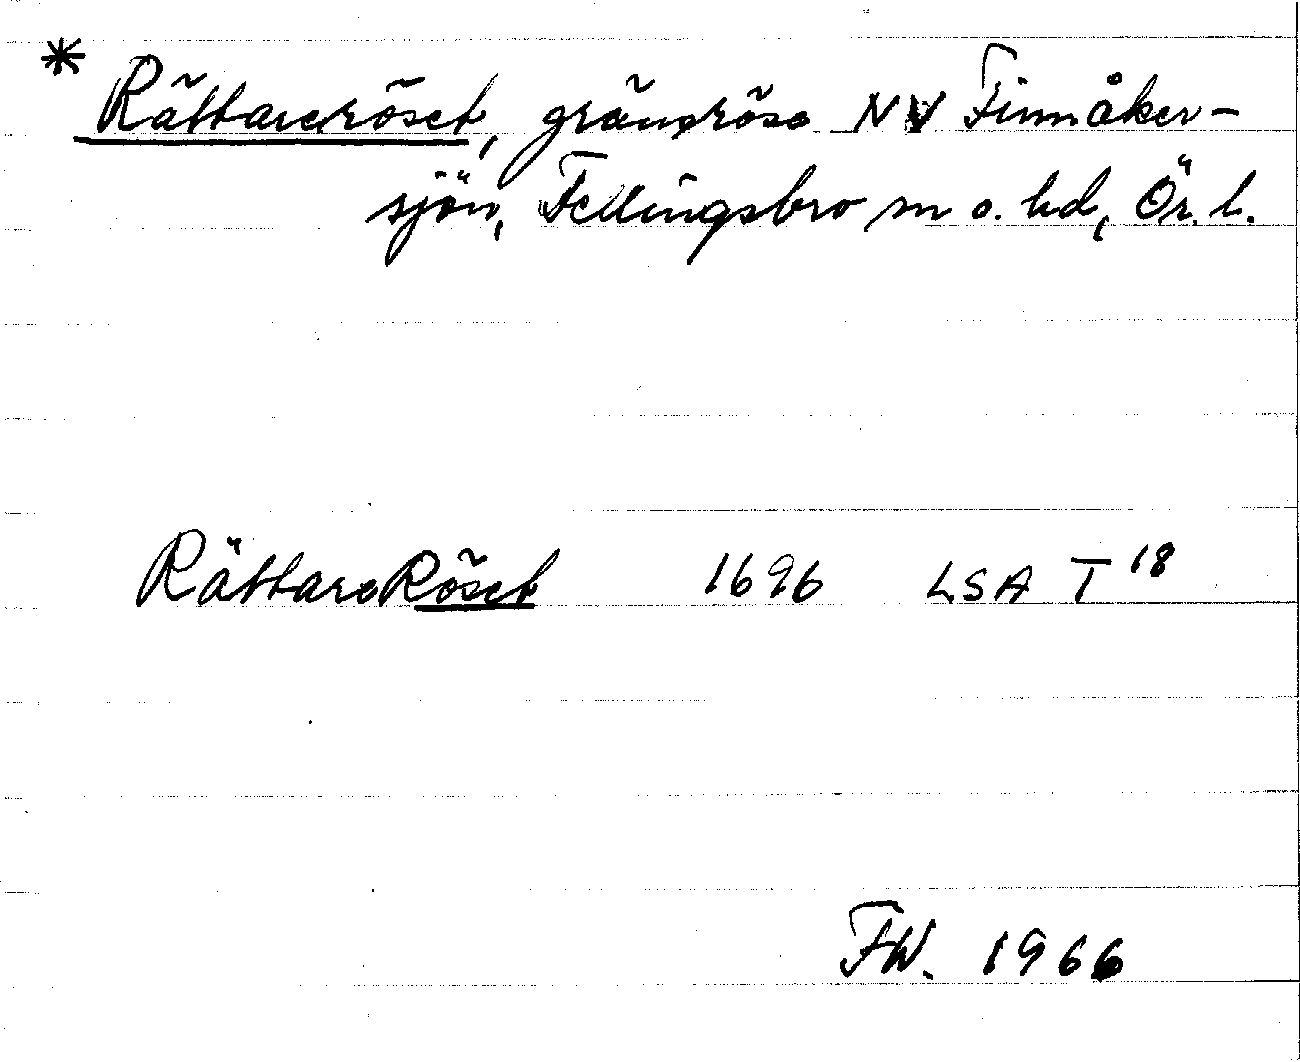 * Rättareröset, gränsröse NV Finnåker-
sjön, Fellingsbro sn o. hd, Ör. l.
RättareRöset 1696 LSA T 18
FW. 1966